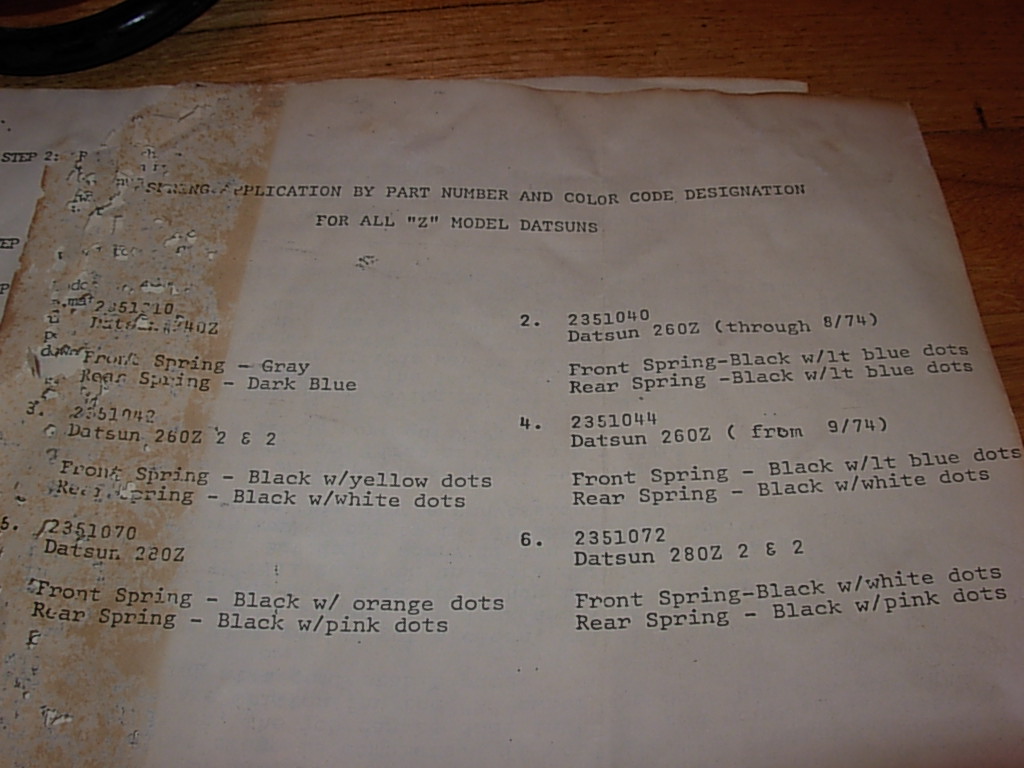 STEP 2:
SPRING APPLICATION BY PART NUMBER AND COLOR CODE DESIGNATION
FOR ALL "Z" MODEL DATSUNS
EP
P
Datsun 240Z
Front Spring - Gray
Rear Spring - Dark Blue
2. 2351040
Datsun 260Z (through 8/74)
Front Spring-Black w/lt blue dots
Rear Spring -Black w/lt blue dots
3. 2351042
Datsun 260Z 2 & 2
Front Spring - Black w/yellow dots
Rear Spring - Black w/white dots
4. 2351044
Datsun 260Z ( from 9/74)
Front Spring - Black w/lt blue dots
Rear Spring - Black w/white dots
5. 2351070
Datsun 280Z
Front Spring - Black w/ orange dots
Rear Spring - Black w/pink dots
6. 2351072
Datsun 280Z 2 & 2
Front Spring-Black w/white dots
Rear Spring - Black w/pink dots